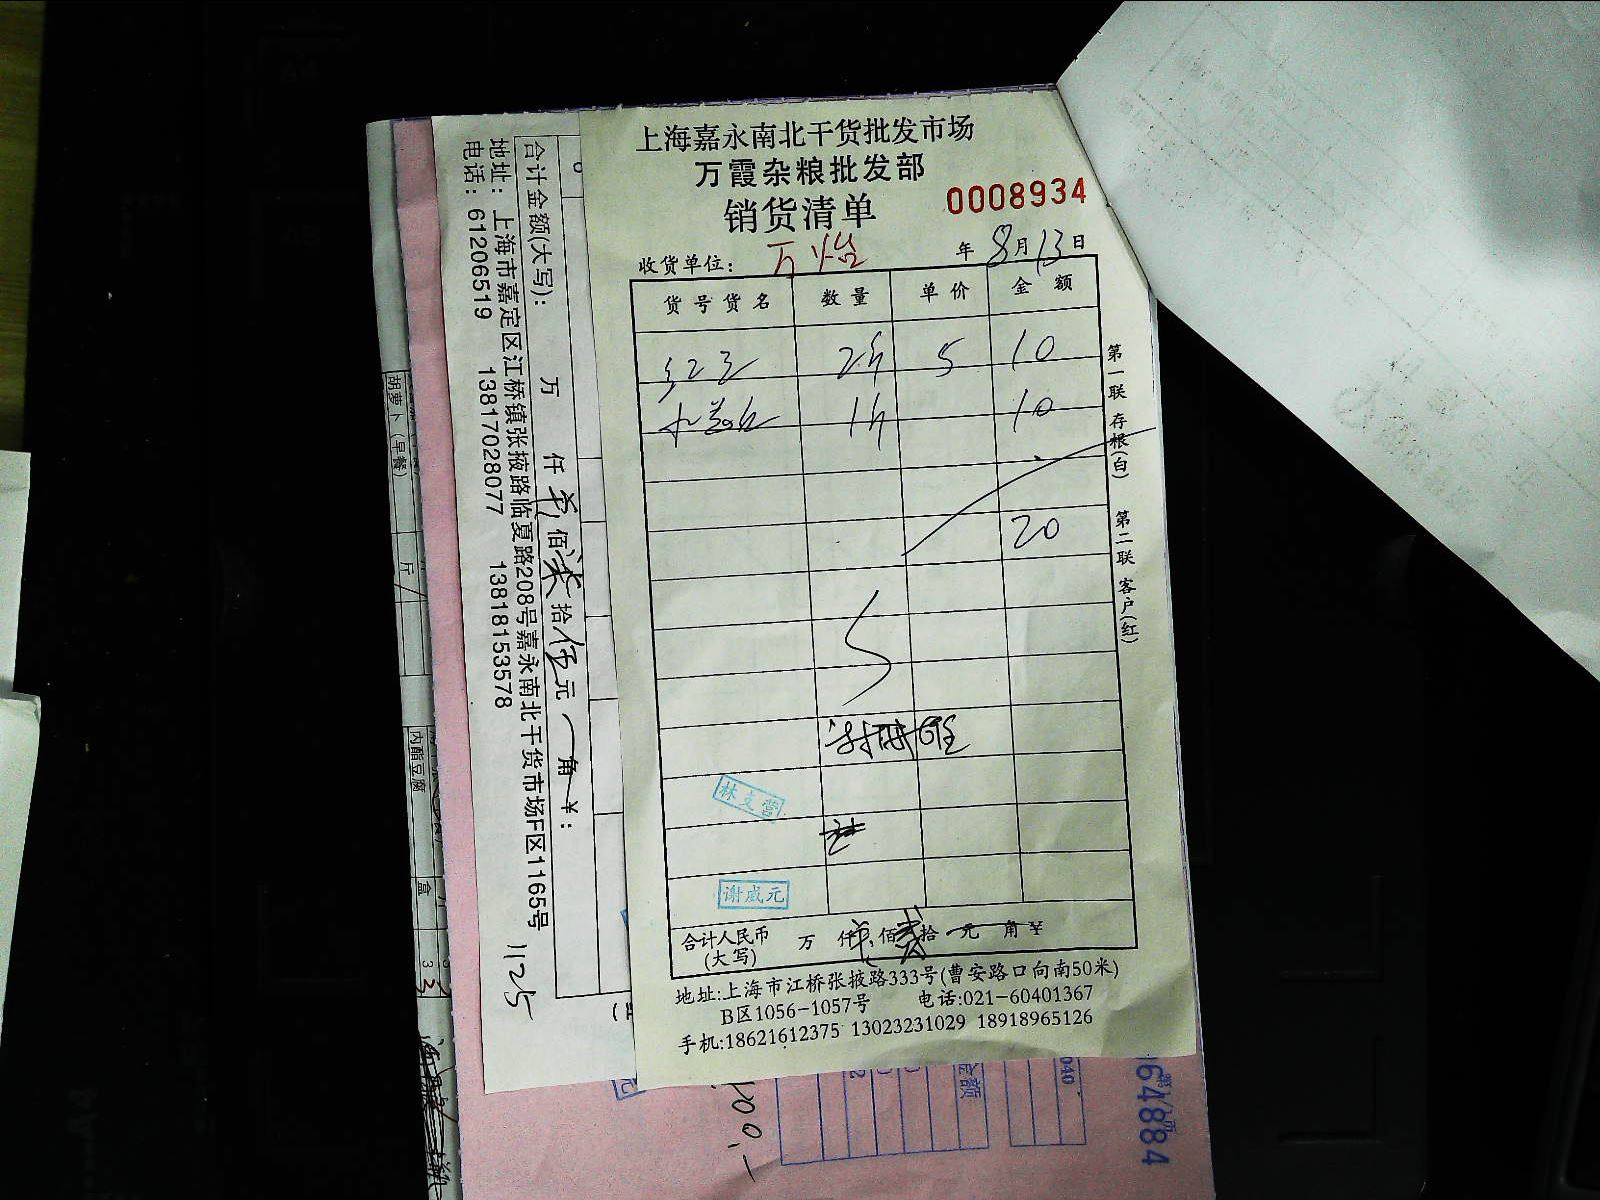 上海嘉永南北干货批发市场
万霞杂粮批发部
销货清单
0008934
收货单位: 万怡 年 8月13日
货号货名 数量 单价 金额
红豆 2斤 5 10
1斤 10
20
林文营
谢威元
合计人民币(大写) 万 仟 佰 贰拾 元 角 ¥
地址:上海市江桥张掖路333号(曹安路口向南50米)
B区1056-1057号 电话:021-60401367
手机:18621612375 13023231029 18918965126
第一联 存根(白) 第二联 客户(红)
合计金额(大写): 万 仟 佰柒拾伍元 角 ¥:
地址: 上海市嘉定区江桥镇张掖路临夏路208号嘉永南北干货市场F区1165号
电话: 61206519 13817028077 13818153578
1125
胡萝卜(早餐) 斤
内酯豆腐 盒 3
金额
040
64884